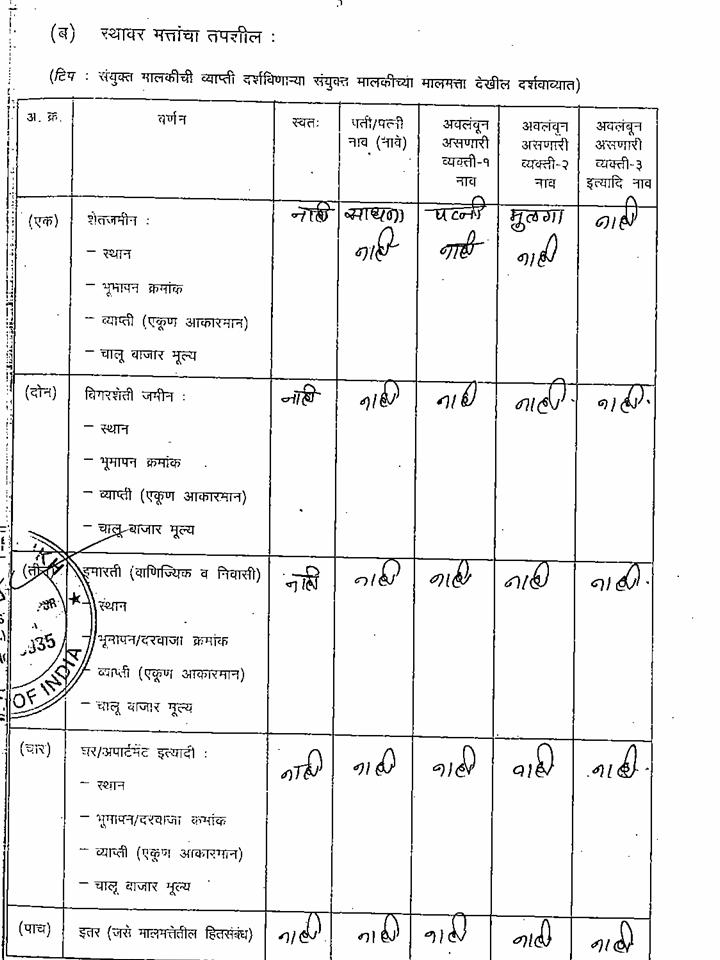 (ब) स्थावर मत्तांचा तपशील :
(टिप : संयुक्त मालकीची व्याप्ती दर्शविणाऱ्या संयुक्त मालकीच्या मालमत्ता देखील दर्शवाव्यात)
अ. क्र. वर्णन स्वतः पती/पत्नी नाव (नावे) अवलंबून असणारी व्यक्ती-१ नाव अवलंबून असणारी व्यक्ती-२ नाव अवलंबून असणारी व्यक्ती-३ इत्यादि नाव
(एक) शेतजमीन : नाही साधना पत्नी मुलगा नाही
– स्थान नाही नाही नाही
– भूमापन क्रमांक
– व्याप्ती (एकूण आकारमान)
– चालू बाजार मूल्य
(दोन) विगरशेती जमीन : नाही नाही नाही नाही नाही
– स्थान
– भूमापन क्रमांक
– व्याप्ती (एकूण आकारमान)
– चालू बाजार मूल्य
(तीन) इमारती (वाणिज्यिक व निवासी) नाही नाही नाही नाही नाही
– स्थान
– भूमापन/दरवाजा क्रमांक
– व्याप्ती (एकूण आकारमान)
– चालू बाजार मूल्य
OF INDIA
(चार) घर/अपार्टमेंट इत्यादी : नाही नाही नाही नाही नाही
– स्थान
– भूमापन/दरवाजा कमांक
– व्याप्ती (एकूण आकारमान)
– चालू बाजार मूल्य
(पाच) इतर (जसे मालमत्तेतील हितसंबंध) नाही नाही नाही नाही नाही